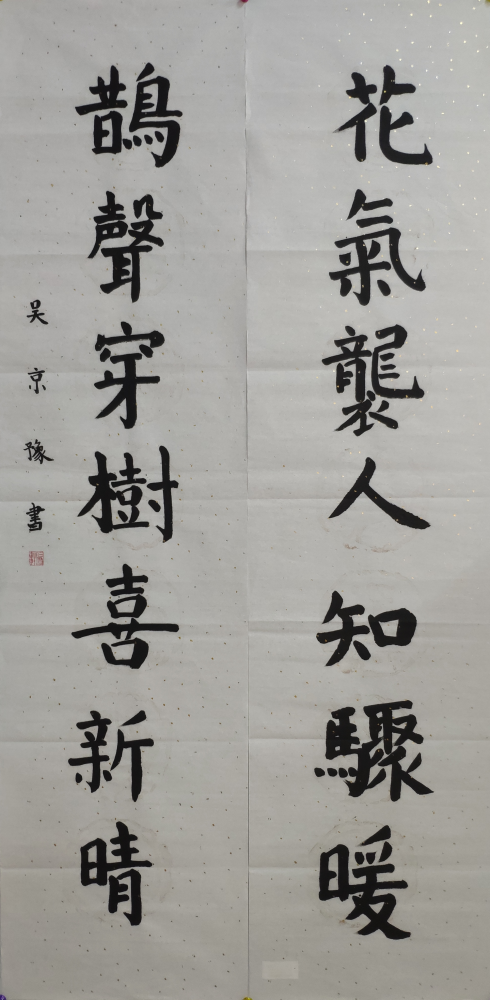 花氣襲人知驟暖
鵲聲穿樹喜新晴
吴京豫書